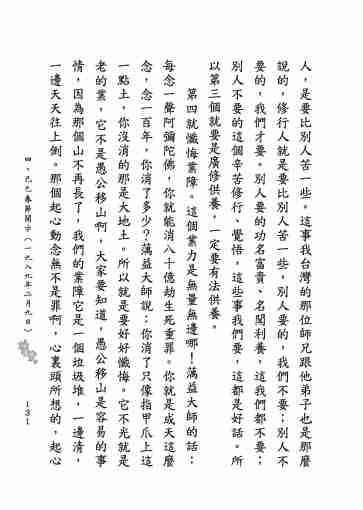 人，是要比別人苦一些。這事我台灣的那位師兄跟他弟子也是那麼
說的，修行人就是要比別人苦一些。別人要的，我們不要；別人不
要的，我們才要。別人要的功名富貴、名聞利養，這我們都不要；
別人不要的這個辛苦修行、覺悟，這些事我們要，這都是好話。所
以第三個就要是廣修供養，一定要有法供養。
第四就懺悔業障。這個業力是無量無邊哪！蕅益大師的話：
每念一聲阿彌陀佛，你就能消八十億劫生死重罪。你就是成天這麼
念，念一百年，你消了多少？蕅益大師說：你消了只像指甲爪上這
一點土，你沒消的那是大地土。所以就是要好好懺悔。它不光就是
老的業，它不是愚公移山啊，大家要知道。愚公移山是容易的事
情，因為那個山不再長了，我們的業障它是一個垃圾堆，一邊清，
一邊天天往上倒。那個起心動念無不是罪啊，心裏頭所想的，起心
四、己巳春節開示（一九八九年二月九日）
131